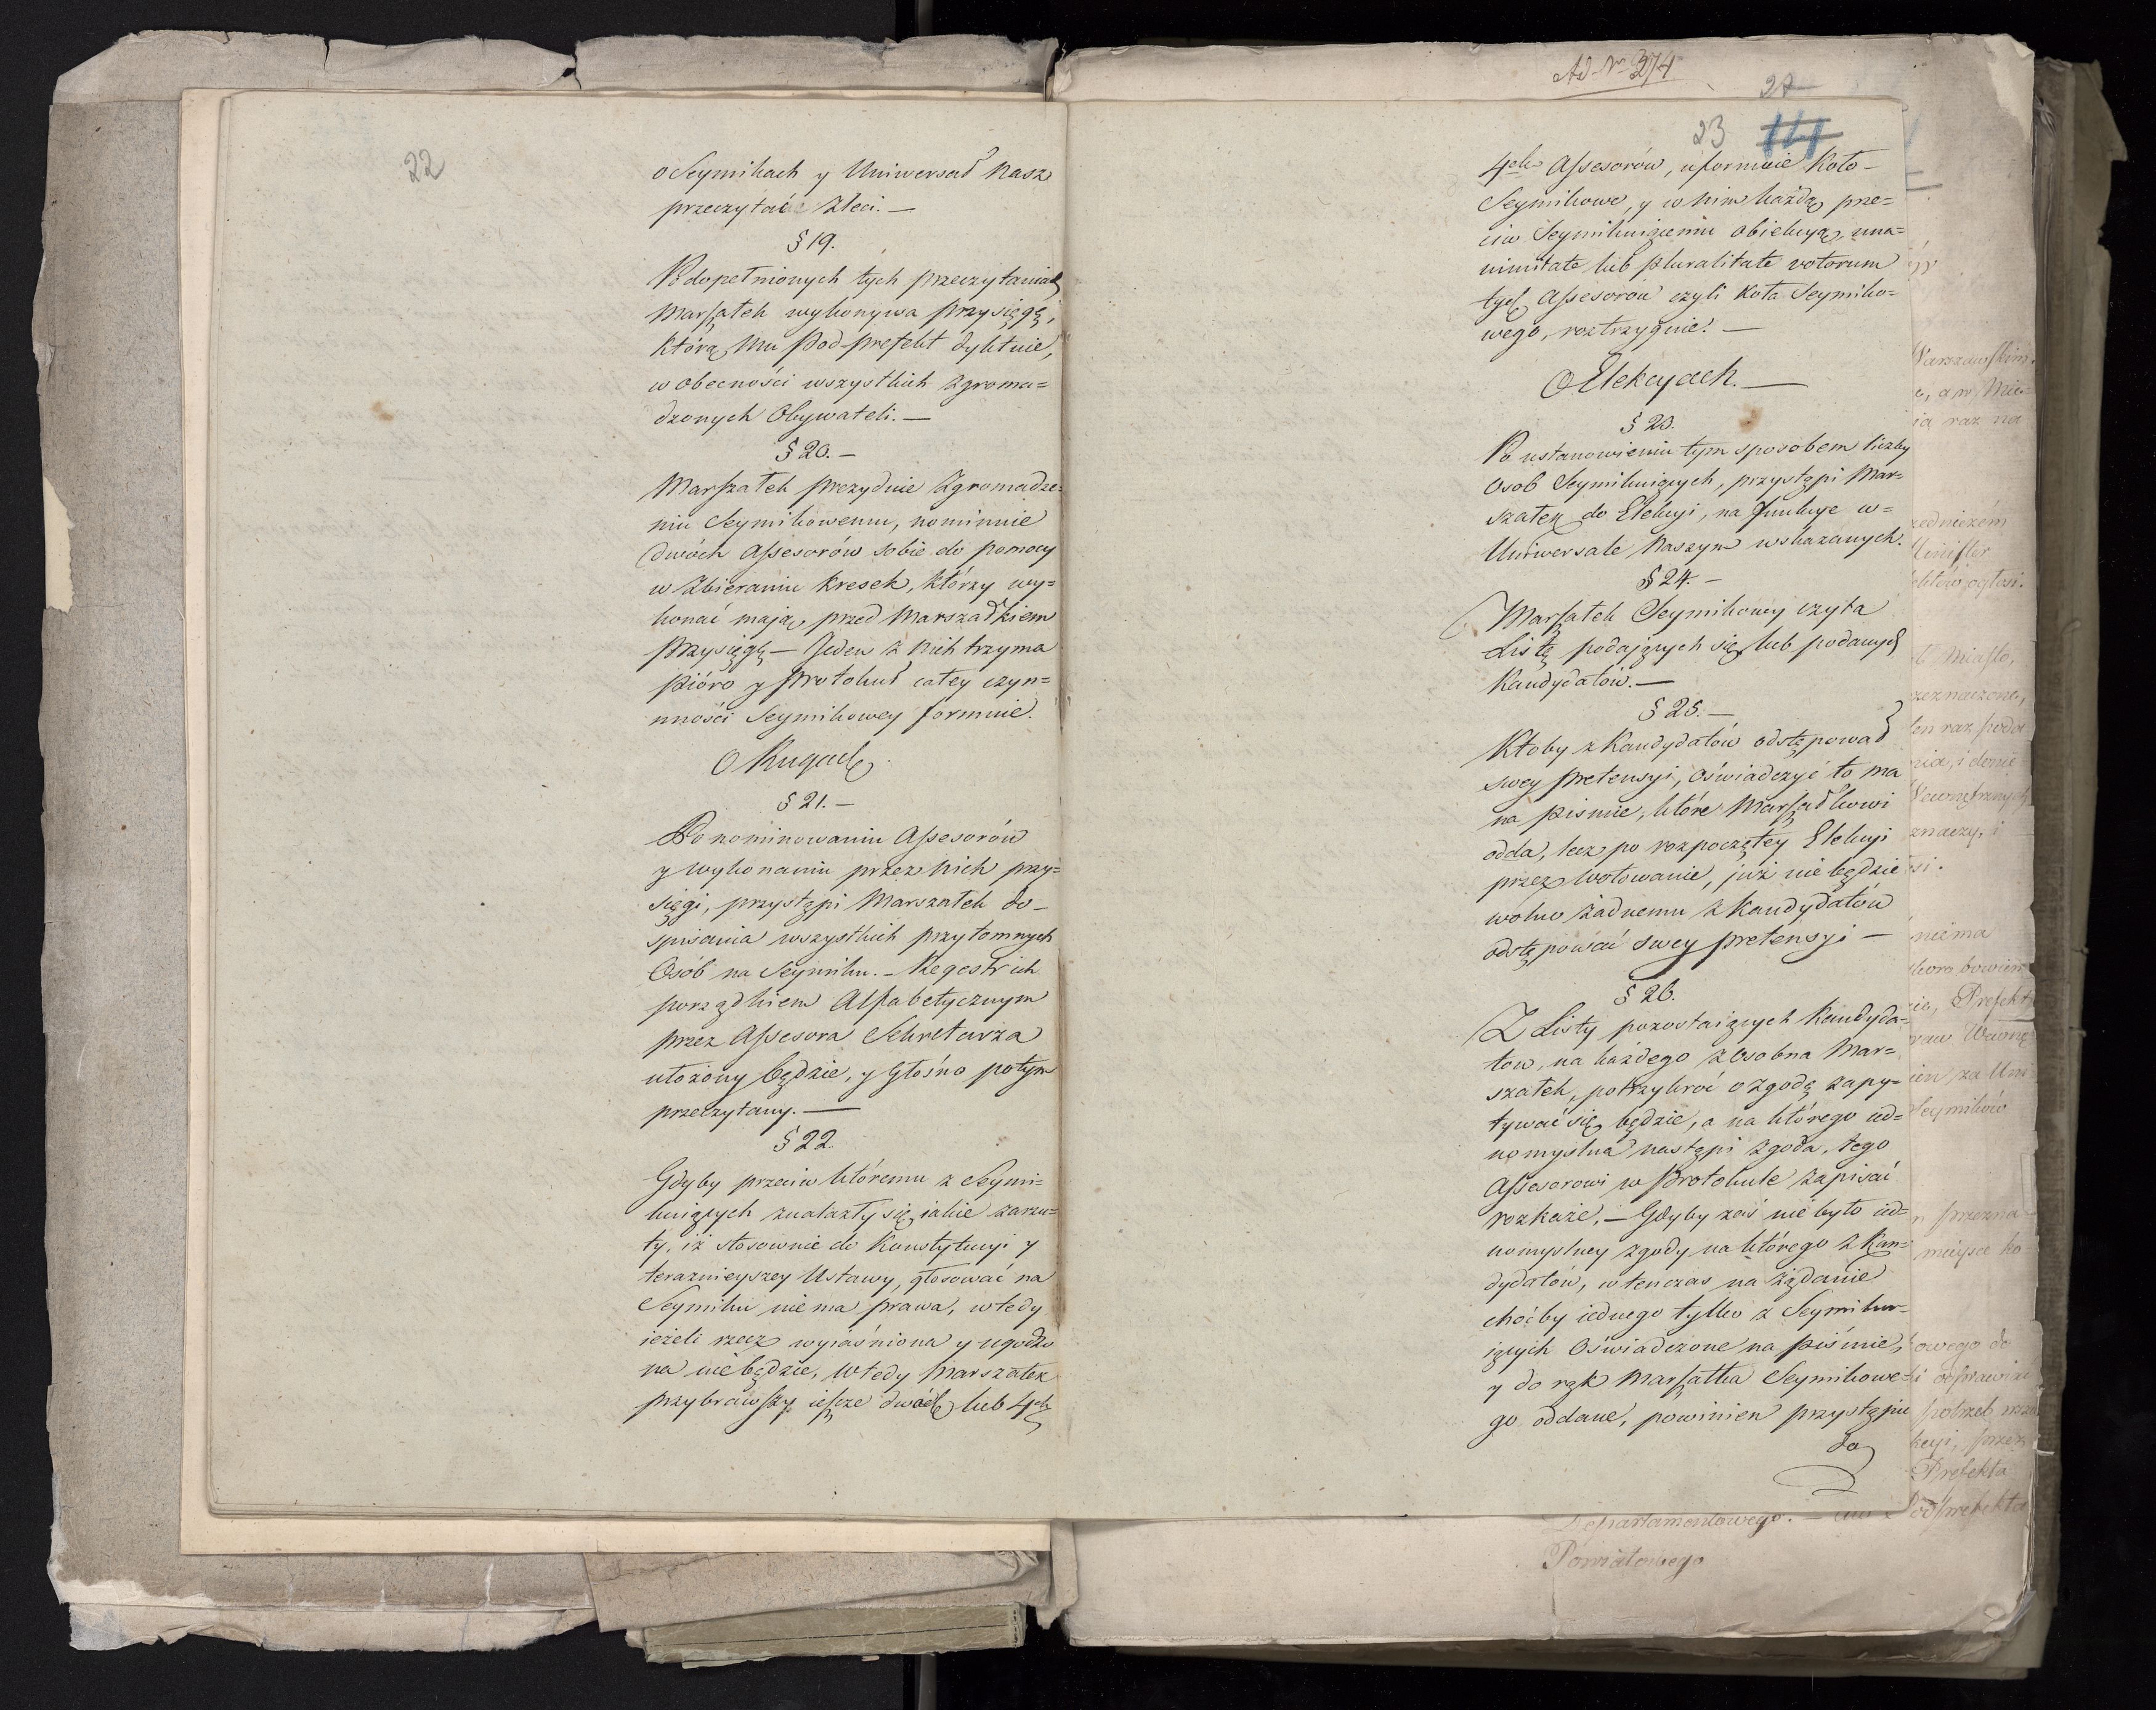 22
o Seymikach y Uniwersał Nasz
przeczytać zleci. —
§ 19.
Po dopełnionych tych przeczytaniach
Marszałek wykonywa przysięgę,
którą mu Pod-prefekt dyktuie,
w obecności wszystkich zgroma=
dzonych Obywateli. —
§ 20. —
Marszałek prezyduie Zgromadze=
niu Seymikowemu, nominuie
dwóch Assesorów sobie do pomocy
w zbieraniu kresek, którzy wy=
konać maią przed Marszałkiem
przysięgę — Jeden z nich trzyma
pióro y Protokuł całey czyn=
nności Seymikowey formuie.
O Rugach.
§ 21. —
Po nominowaniu Assesorów
y wykonaniu przez nich przy=
sięgi, przystąpi Marszałek do
spisania wszystkich przytomnych
Osób na Seymiku. — Regestr ich
porządkiem Alfabetycznym
przez Assesora Sekretarza
ułożony będzie, y głośno potym
przeczytany. —
§ 22.
Gdyby przeciw któremu z Seymi=
kuiących znalazły się iakie zarzu=
ty, iż stosownie do Konstytucyi y
teraznieyszey Ustawy, głosować na
Seymiku nie ma prawa, wtedy
ieżeli rzecz wyiaśniona y ugodzo
na nie będzie, wtedy Marszałek
przybrawszy ieszcze dwóch lub 4ch
Ad No 374
23
4ch Assesorów, uformuie Koło
Seymikowe, y w nim każdą prze=
ciw Seymikuiącemu obiekcyą, una=
nimitate lub pluralitate votorum
tych Assesorów czyli Koła Seymiko=
wego, roztrzygnie. —
O Elekcyach. —
§ 23.
Po ustanowieniu tym sposobem liczby
Osob Seymikuiących, przystąpi Mar=
szałek do Elekcyi, na funkcye w=
Uniwersale Naszym wskazanych.
§ 24. —
Marszałek Seymikowy czyta
Listę podaiących się, lub podanych
Kandydatów. —
§ 25. —
Ktoby z Kandydatów odstępował
swey pretensyi, oświadczyć to ma
na piśmie, które Marszałkowi
odda, lecz po rozpoczętey Elekcyi
przez wotowanie, już nie będzie
wolno żadnemu z Kandydatów
odstępować swey pretensyi —
§ 26.
Z Listy pozostaiących Kandyda=
tow, na każdego z osobna Mar=
szałek, potrzykroć o zgodę zapy=
tywać się będzie, a na którego ied=
nomyslna nastąpi zgoda, tego
Assesorowi w Protokule zapisać
rozkaże, — Gdyby zaś nie było ied=
nomyslney zgody na którego z Kan=
dydatów, wtenczas na żądanie
choćby iednego tylko z Seymiku=
iących oświadczone na piśmie,
y do rąk Marszałka Seymikowe=
go oddane, powinien przystąpić
do
Departamentowego. —
Powiatowego